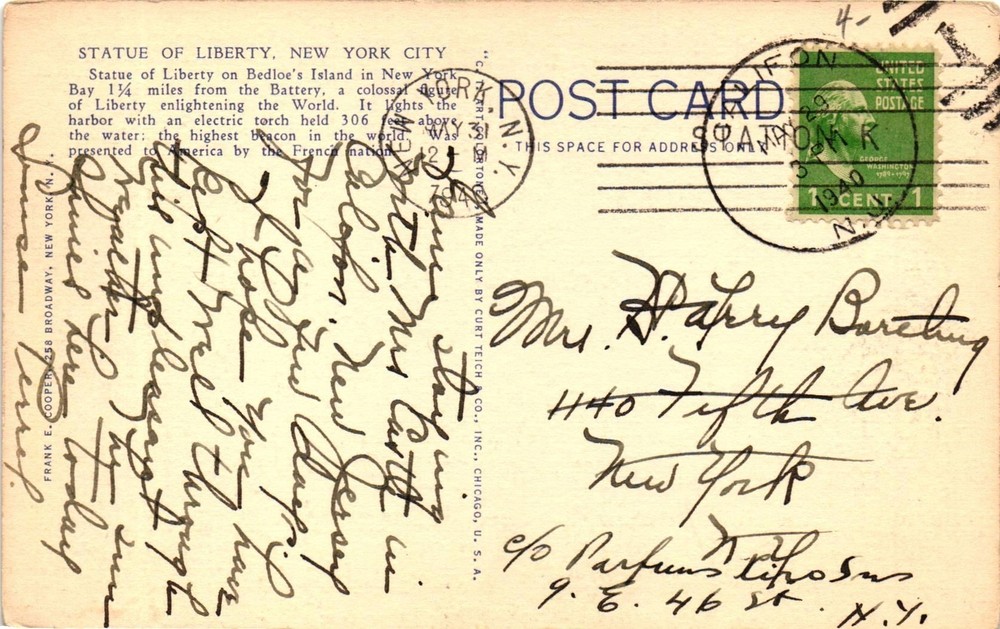 4-
STATUE OF LIBERTY, NEW YORK CITY
Statue of Liberty on Bedloe's Island in New York
Bay 1¼ miles from the Battery, a colossal figure
of Liberty enlightening the World. It lights the
harbor with an electric torch held 306 feet above
the water: the highest beacon in the world. It was
presented to America by the French nation.
POST CARD
THIS SPACE FOR ADDRESS ONLY
"C. T. ART-COLORTONE" MADE ONLY BY CURT TEICH & CO., INC., CHICAGO, U. S. A.
FRANK E. COOPER, 258 BROADWAY, NEW YORK N.
NEW YORK, N.Y.
MAY 31
2
1940
CALIFON
MAY 29
3 PM
1940
N.J.
STATION K
UNITED
STATES
POSTAGE
GEORGE
WASHINGTON
1789-1797
1 CENT 1
I am staying
with Mrs Castle in
Califon, New Jersey
for a few days.
I hope you have
kept well through
this unpleasant
weather. By
here today
Mrs. Harry
1140 Fifth Ave.
New York
N.Y.
c/o Parfums
9. E. 46 St. N.Y.